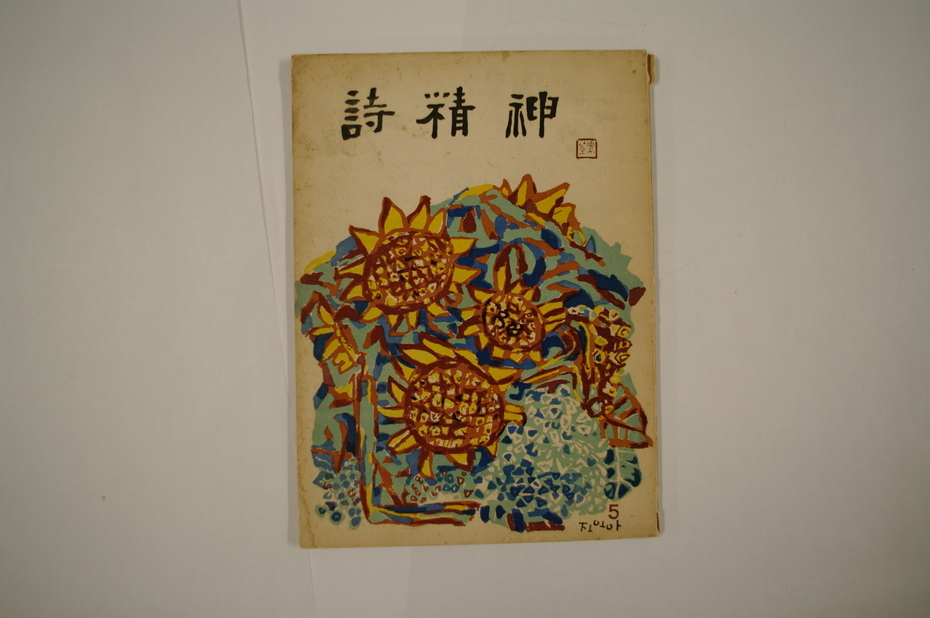 詩精神
5